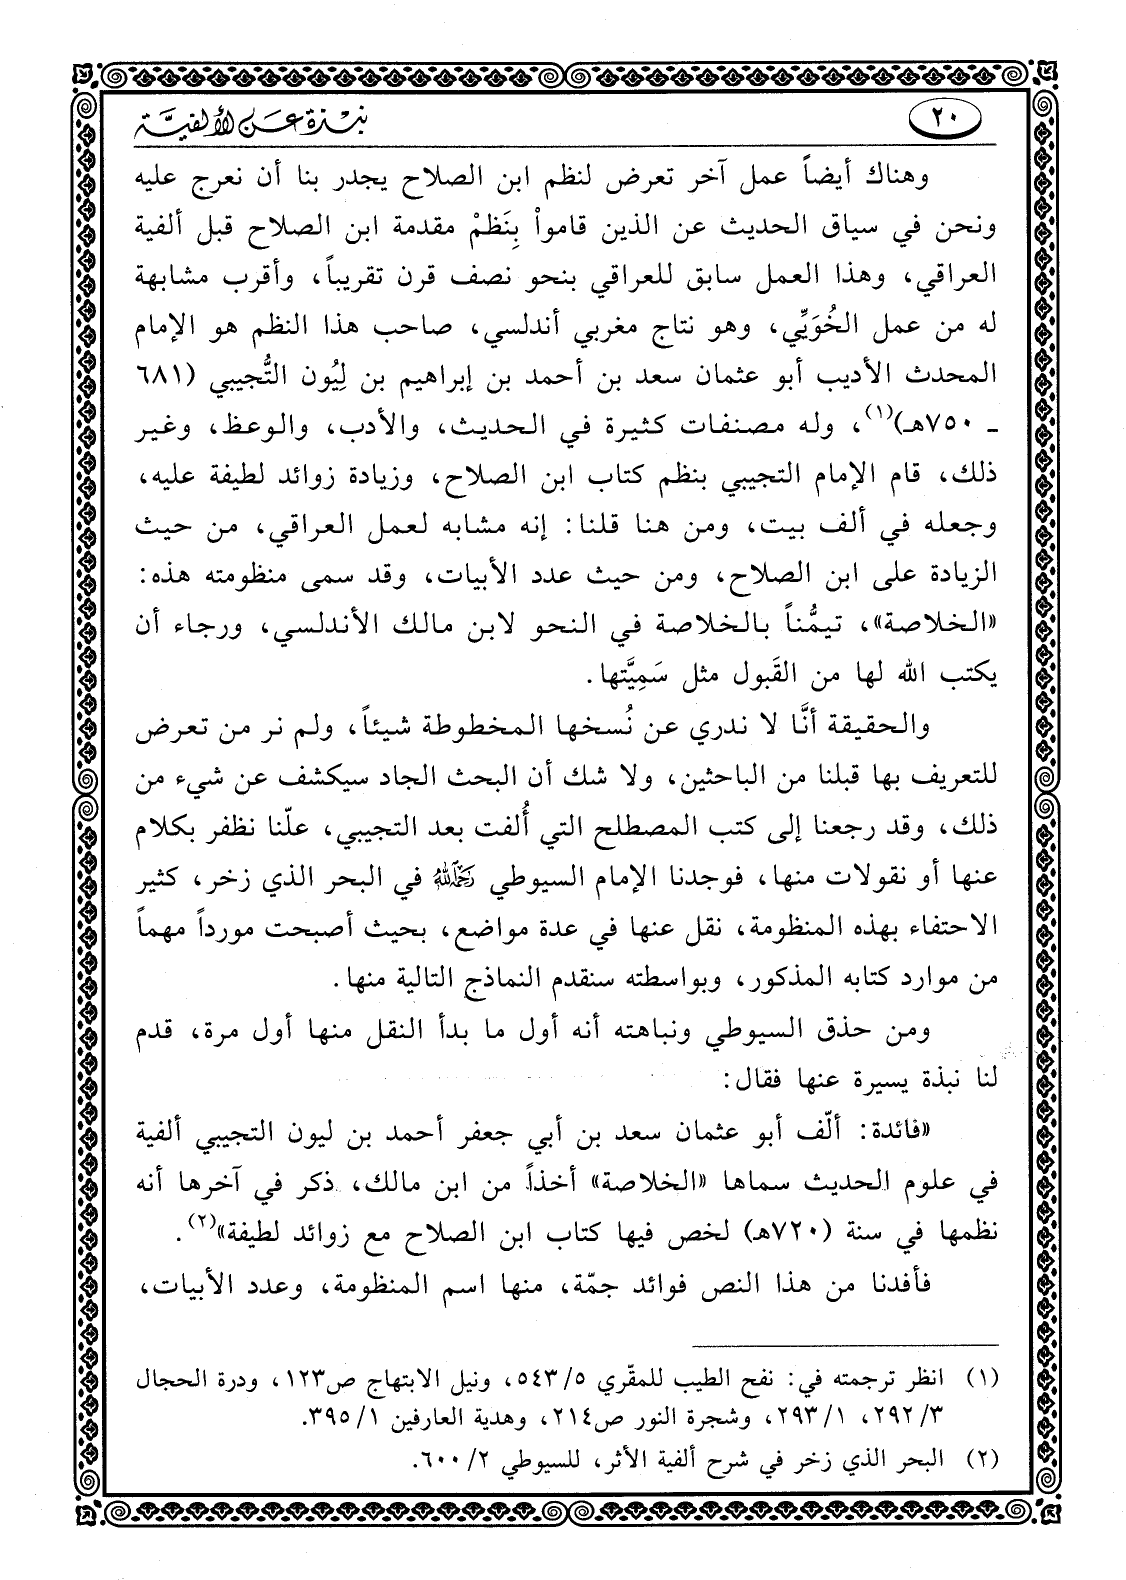 ٢٠
نبذة عن الألفية
وهناك أيضاً عمل آخر تعرض لنظم ابن الصلاح يجدر بنا أن نعرج عليه
ونحن في سياق الحديث عن الذين قامواْ بِنَظمْ مقدمة ابن الصلاح قبل ألفية
العراقي، وهذا العمل سابق للعراقي بنحو نصف قرن تقريباً، وأقرب مشابهة
له من عمل الخُوَيِّي، وهو نتاج مغربي أندلسي، صاحب هذا النظم هو الإمام
المحدث الأديب أبو عثمان سعد بن أحمد بن إبراهيم بن لِيُون التُّجيبي (٦٨١
ـ ٧٥٠هـ)(١)، وله مصنفات كثيرة في الحديث، والأدب، والوعظ، وغير
ذلك، قام الإمام التجيبي بنظم كتاب ابن الصلاح، وزيادة زوائد لطيفة عليه،
وجعله في ألف بيت، ومن هنا قلنا: إنه مشابه لعمل العراقي، من حيث
الزيادة على ابن الصلاح، ومن حيث عدد الأبيات، وقد سمى منظومته هذه:
«الخلاصة»، تيمُّناً بالخلاصة في النحو لابن مالك الأندلسي، ورجاء أن
يكتب الله لها من القَبول مثل سَمِيَّتها.
والحقيقة أنَّا لا ندري عن نُسخها المخطوطة شيئاً، ولم نر من تعرض
للتعريف بها قبلنا من الباحثين، ولا شك أن البحث الجاد سيكشف عن شيء من
ذلك، وقد رجعنا إلى كتب المصطلح التي أُلفت بعد التجيبي، علّنا نظفر بكلام
عنها أو نقولات منها، فوجدنا الإمام السيوطي رَحِمَهُ اللَّهُ في البحر الذي زخر، كثير
الاحتفاء بهذه المنظومة، نقل عنها في عدة مواضع، بحيث أصبحت مورداً مهماً
من موارد كتابه المذكور، وبواسطته سنقدم النماذج التالية منها.
ومن حذق السيوطي ونباهته أنه أول ما بدأ النقل منها أول مرة، قدم
لنا نبذة يسيرة عنها فقال:
«فائدة: ألّف أبو عثمان سعد بن أبي جعفر أحمد بن ليون التجيبي ألفية
في علوم الحديث سماها «الخلاصة» أخذاً من ابن مالك، ذكر في آخرها أنه
نظمها في سنة (٧٢٠هـ) لخص فيها كتاب ابن الصلاح مع زوائد لطيفة»(٢).
فأفدنا من هذا النص فوائد جمّة، منها اسم المنظومة، وعدد الأبيات،
(١) انظر ترجمته في: نفح الطيب للمقّري ٥/ ٥٤٣، ونيل الابتهاج ص١٢٣، ودرة الحجال
٣/ ٢٩٢، ١/ ٢٩٣، وشجرة النور ص٢١٤، وهدية العارفين ١/ ٣٩٥.
(٢) البحر الذي زخر في شرح ألفية الأثر، للسيوطي ٢/ ٦٠٠.